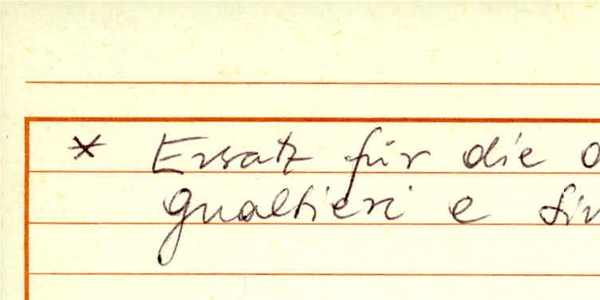 * Ersatz für die
Gualtieri e